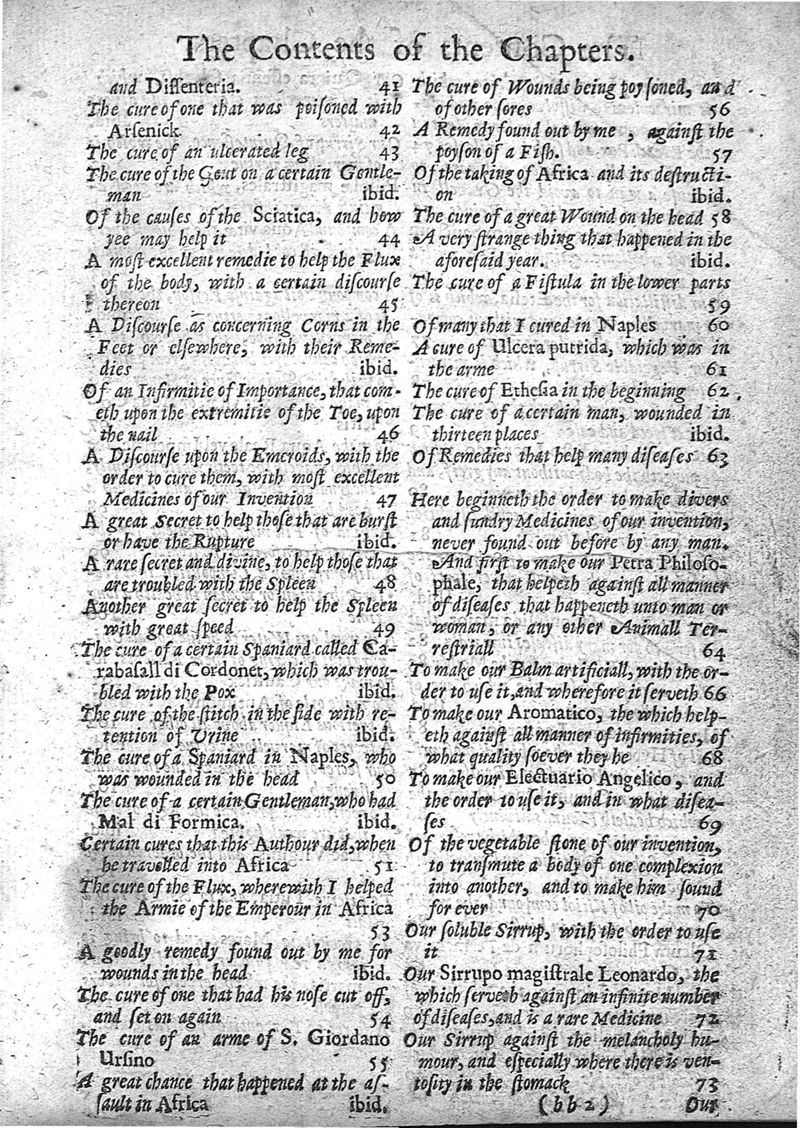 The Contents of the Chapters.
and Diſſenteria. 41
The cure of one that was poiſoned with
Arſenick 42
The cure of an ulcerated leg 43
The cure of the Gout on a certain Gentle-
man ibid.
Of the cauſes of the Sciatica, and how
yee may help it 44
A moſt excellent remedie to help the Flux
of the body, with a certain diſcourſe
thereon 45
A Diſcourſe as concerning Corns in the
Feet or elſewhere, with their Reme-
dies ibid.
Of an Infirmitie of Importance, that com-
eth upon the extremitie of the Toe, upon
the nail 46
A Diſcourſe upon the Emeroids, with the
order to cure them, with moſt excellent
Medicines of our Invention 47
A great Secret to help thoſe that are burſt
or have the Rupture ibid.
A rare ſecret and divine, to help thoſe that
are troubled with the Spleen 48
Another great ſecret to help the Spleen
with great ſpeed 49
The cure of a certain Spaniard called Ca-
rabaſall di Cordonet, which was trou-
bled with the Pox ibid.
The cure of the ſtitch in the ſide with re-
tention of Urine ibid.
The cure of a Spaniard in Naples, who
was wounded in the head 50
The cure of a certain Gentleman, who had
Mal di Formica. ibid.
Certain cures that this Authour did, when
he travelled into Africa 51
The cure of the Flux, wherewith I helped
the Armie of the Emperour in Africa
53
A goodly remedy found out by me for
wounds in the head ibid.
The cure of one that had his noſe cut off,
and ſet on again 54
The cure of an arme of S. Giordano
Urſino 55
A great chance that happened at the aſ-
ſault in Africa ibid.
The cure of Wounds being poyſoned, and
of other ſores 56
A Remedy found out by me, against the
poyſon of a Fiſh. 57
Of the taking of Africa and its deſtructi-
on ibid.
The cure of a great Wound on the head 58
A very ſtrange thing that happened in the
aforeſaid year. ibid.
The cure of a Fiſtula in the lower parts
59
Of many that I cured in Naples 60
A cure of Ulcera putrida, which was in
the arme 61
The cure of Etheſia in the beginning 62
The cure of a certain man, wounded in
thirteen places ibid.
Of Remedies that help many diſeaſes 63
Here beginneth the order to make divers
and ſundry Medicines of our invention,
never found out before by any man.
And firſt to make our Petra Philoſo-
phale, that helpeth againſt all manner
of diſeaſes that happeneth unto man or
woman, or any other Animall Ter-
reſtriall 64
To make our Balm artificiall, with the or-
der to uſe it, and wherefore it ſerveth 66
To make our Aromatico, the which help-
eth againſt all manner of infirmities, of
what quality ſoever they be 68
To make our Electuario Angelico, and
the order to uſe it, and in what diſea-
ſes 69
Of the vegetable ſtone of our invention,
to tranſmute a body of one complexion
into another, and to make him ſound
for ever 70
Our ſoluble Sirrup, with the order to uſe
it 71
Our Sirrupo magiſtrale Leonardo, the
which ſerveth againſt an infinite number
of diſeaſes, and is a rare Medicine 72
Our Sirrup againſt the melancholy hu-
mour, and eſpecially where there is ven-
toſity in the ſtomack 73
(bb2) Our